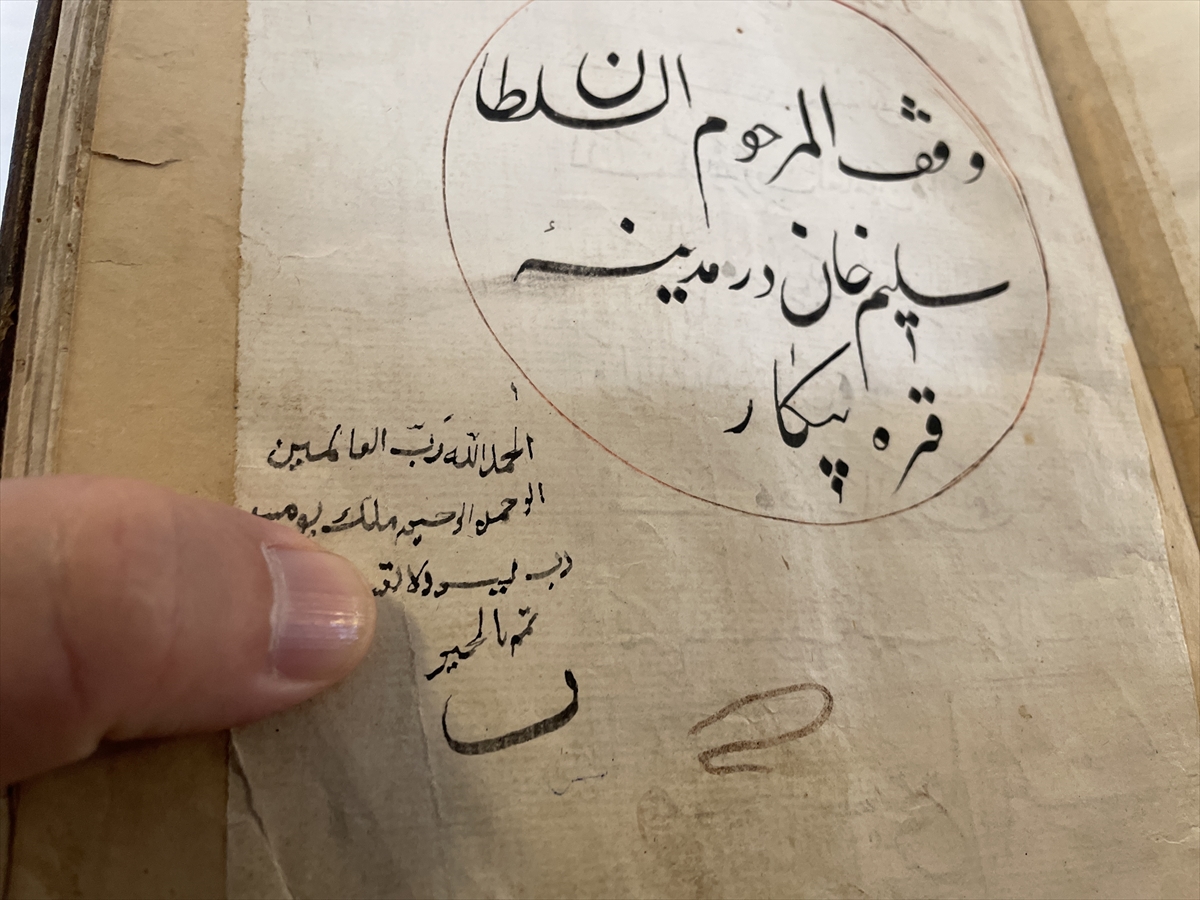 وقف المرحوم السلطان
سليم خان در مدينهٔ
قره پيكار
الحمد الله رَبّ العالمين
الرحمن الرحيم ملك يوم
رب يسر ولا
تمم بالخير